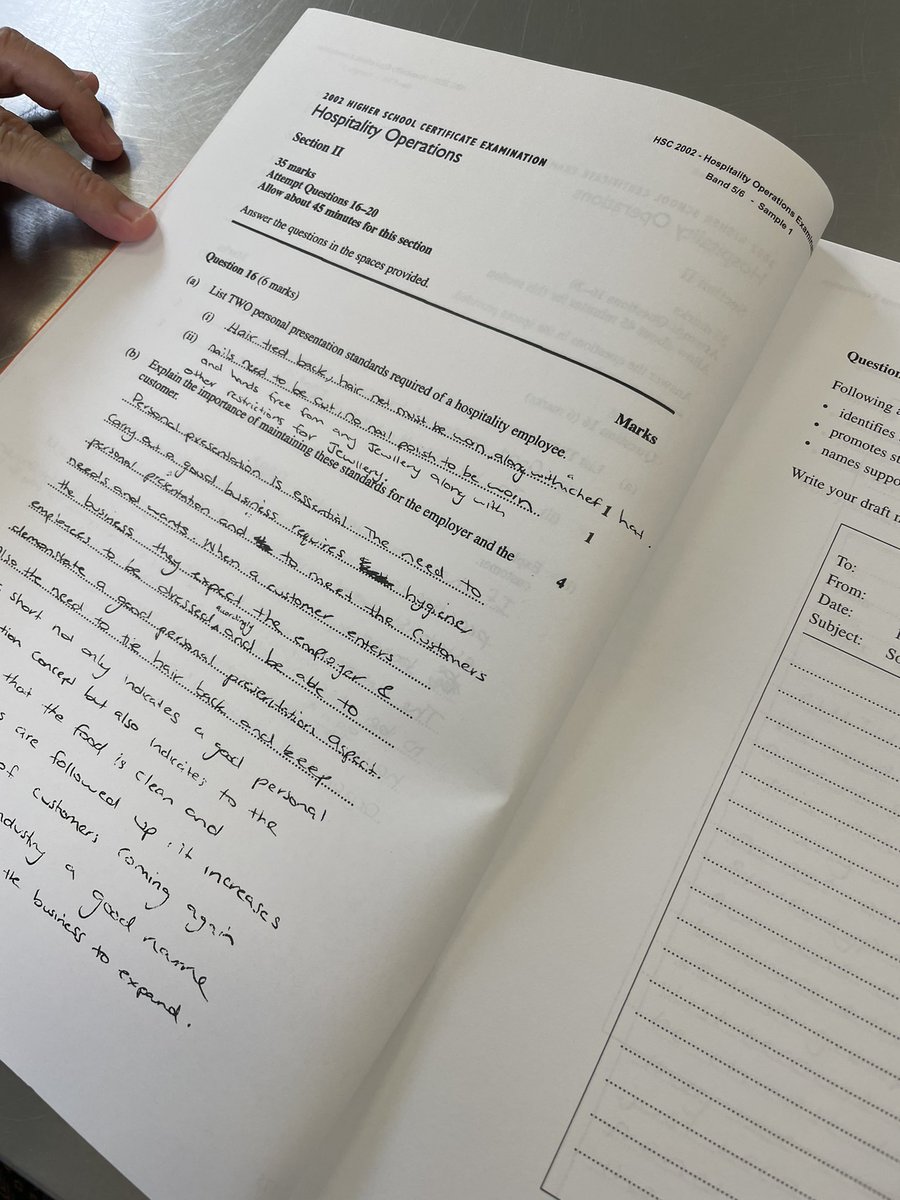 2002 HIGHER SCHOOL CERTIFICATE EXAMINATION
Hospitality Operations
HSC 2002 - Hospitality Operations
Band 5/6 - Sample 1
Section II
35 marks
Attempt Questions 16–20
Allow about 45 minutes for this section
Answer the questions in the spaces provided.
Marks
Question 16 (6 marks)
(a) List TWO personal presentation standards required of a hospitality employee.
(i) Hair tied back, hair net must be worn along with a chef hat. 1
(ii) nails need to be cut, no nail polish to be worn. 1
and hands free from any Jewellery along with
other restrictions for Jewellery.
(b) Explain the importance of maintaining these standards for the employer and the 4
customer.
Personal presentation is essential. The need to
carry out a good business requires hygiene
personal presentation and to meet the customers
needs and wants. When a customer enters
the business they expect the employer &
employees to be dressed accordingly and be able to
demonstrate a good personal presentation aspect.
the need to tie hair back and keep
short not only indicates a good personal
concept but also indicates to the
that the food is clean and
are followed up, it increases
of customers coming again
a good name
the business to expand.
Following
• identifies
• promotes
• names
Write your draft
To:
From:
Date:
Subject: